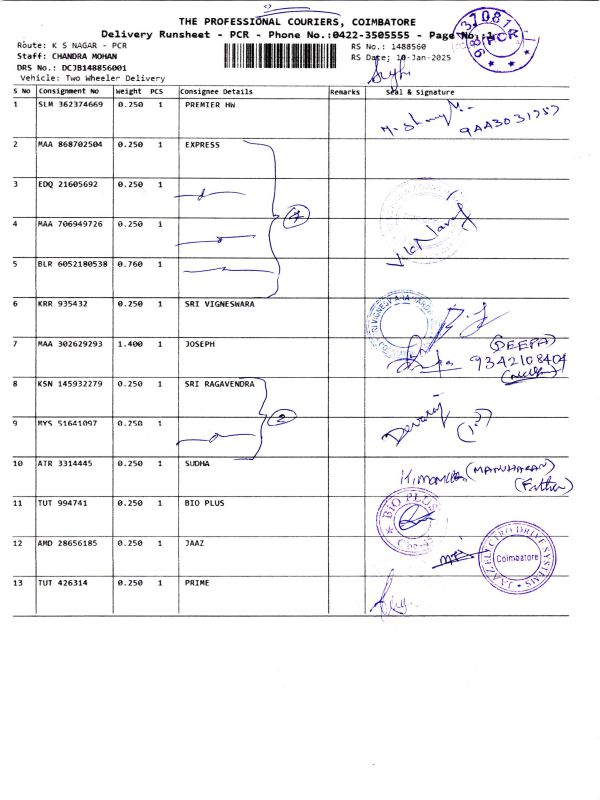 THE PROFESSIONAL COURIERS, COIMBATORE
Delivery Runsheet - PCR - Phone No.:0422-3505555 - Page No.:
Route: K S NAGAR - PCR RS No.: 1488560
Staff: CHANDRA MOHAN RS Date: 10-Jan-2025
DRS No.: DCJB148856001
Vehicle: Two Wheeler Delivery
PCR
S No Consignment No Weight PCS Consignee Details Remarks Seal & signature
1 SLM 362374669 0.250 1 PREMIER HW
2 MAA 868702504 0.250 1 EXPRESS
3 EDQ 21605692 0.250 1
4 MAA 706949726 0.250 1
5 BLR 6052180538 0.760 1
6 KRR 935432 0.250 1 SRI VIGNESWARA
7 MAA 302629293 1.400 1 JOSEPH (DEEPA)
9342108404
8 KSN 145932279 0.250 1 SRI RAGAVENDRA
2
9 MYS 51641097 0.250 1 Devaraj
10 ATR 3314445 0.250 1 SUDHA (MANOHARAN)
(Father)
11 TUT 994741 0.250 1 BIO PLUS BIO PLUS
12 AMD 28656185 0.250 1 JAAZ JAAZ ELECTRO DRIVE SYSTEMS
Coimbatore
13 TUT 426314 0.250 1 PRIME